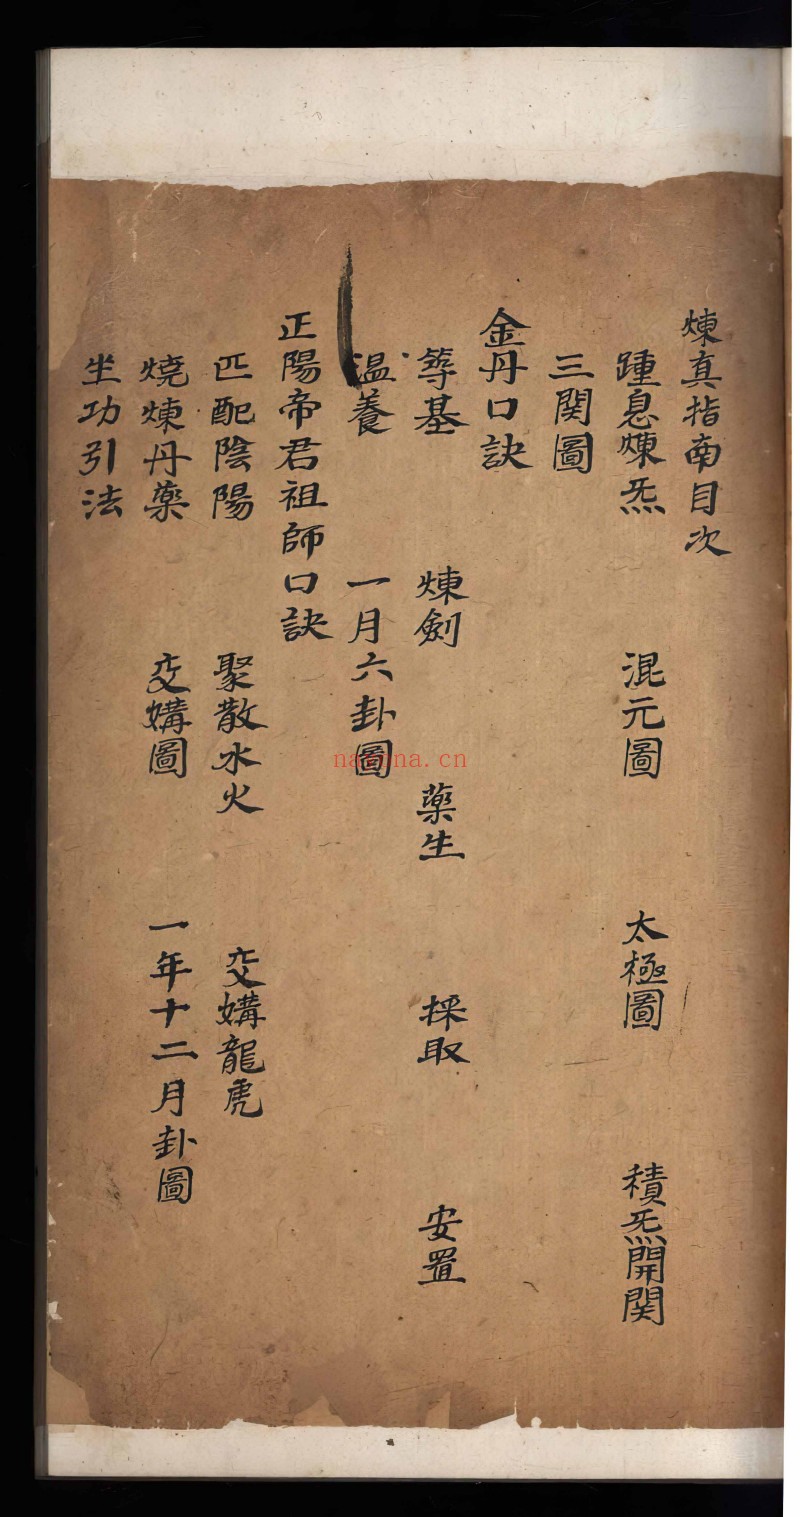 煉真指南目次
踵息煉炁 混元圖 太極圖 積炁開関
三関圖
金丹口訣
筑基 煉劍 藥生 採取 安置
温養 一月六卦圖
正陽帝君祖師口訣
匹配陰陽 聚散水火 交媾龍虎
燒煉丹藥 交媾圖 一年十二月卦圖
坐功引法
nayona.cn